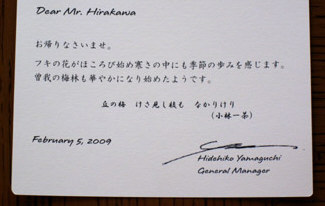 Dear Mr. Hirakawa
お帰りなさいませ。
フキの花がほころび始め寒さの中にも季節の歩みを感じます。
曽我の梅林も華やかになり始めたようです。
丘の梅 けさ見し枝も なかりけり
(小林一茶)
February 5, 2009
Hidehiko Yamaguchi
General Manager